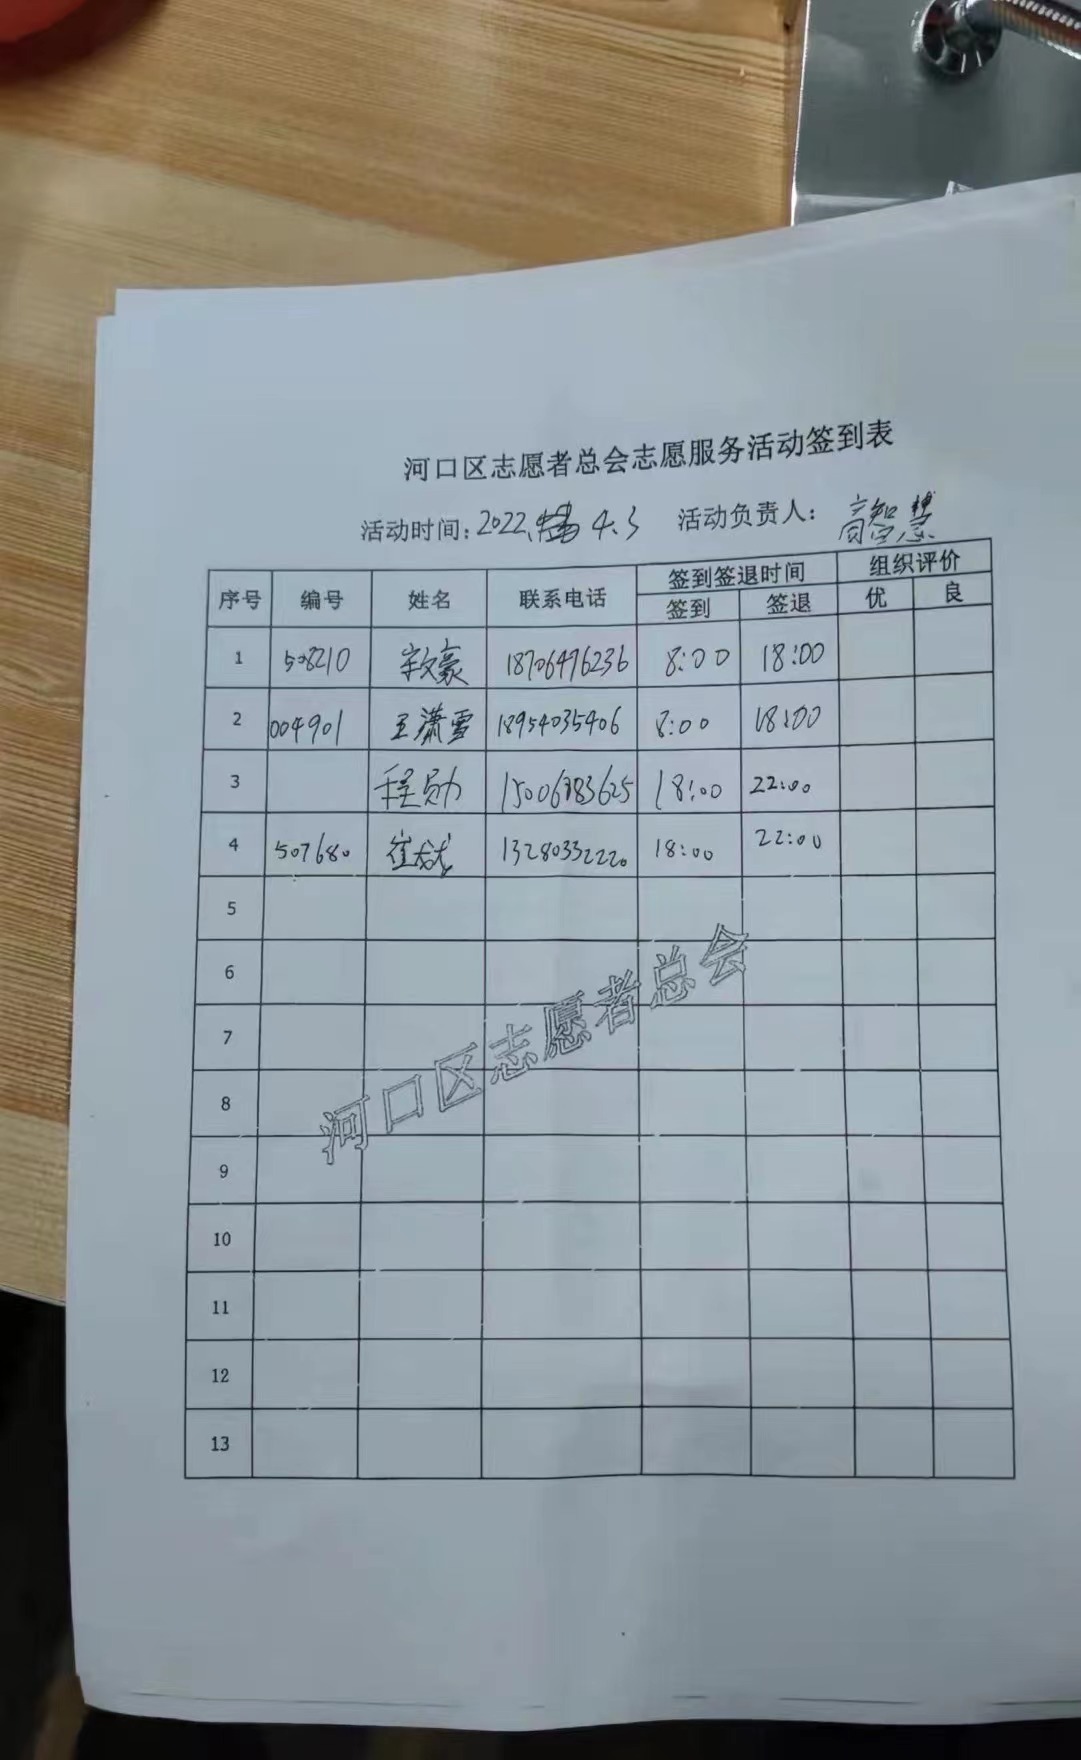 河口区志愿者总会志愿服务活动签到表
活动时间: 2022. 4.3 活动负责人: 高智慧
序号 编号 姓名 联系电话 签到签退时间 组织评价
签到 签退 优 良
1 508210 豪 18706476236 8:00 18:00
2 004901 王潇雪 18954035406 8:00 18:00
3 程勋 18:00 22:00
4 507680 崔 13280332220 18:00 22:00
5
6
7
8
9
10
11
12
13
河口区志愿者总会